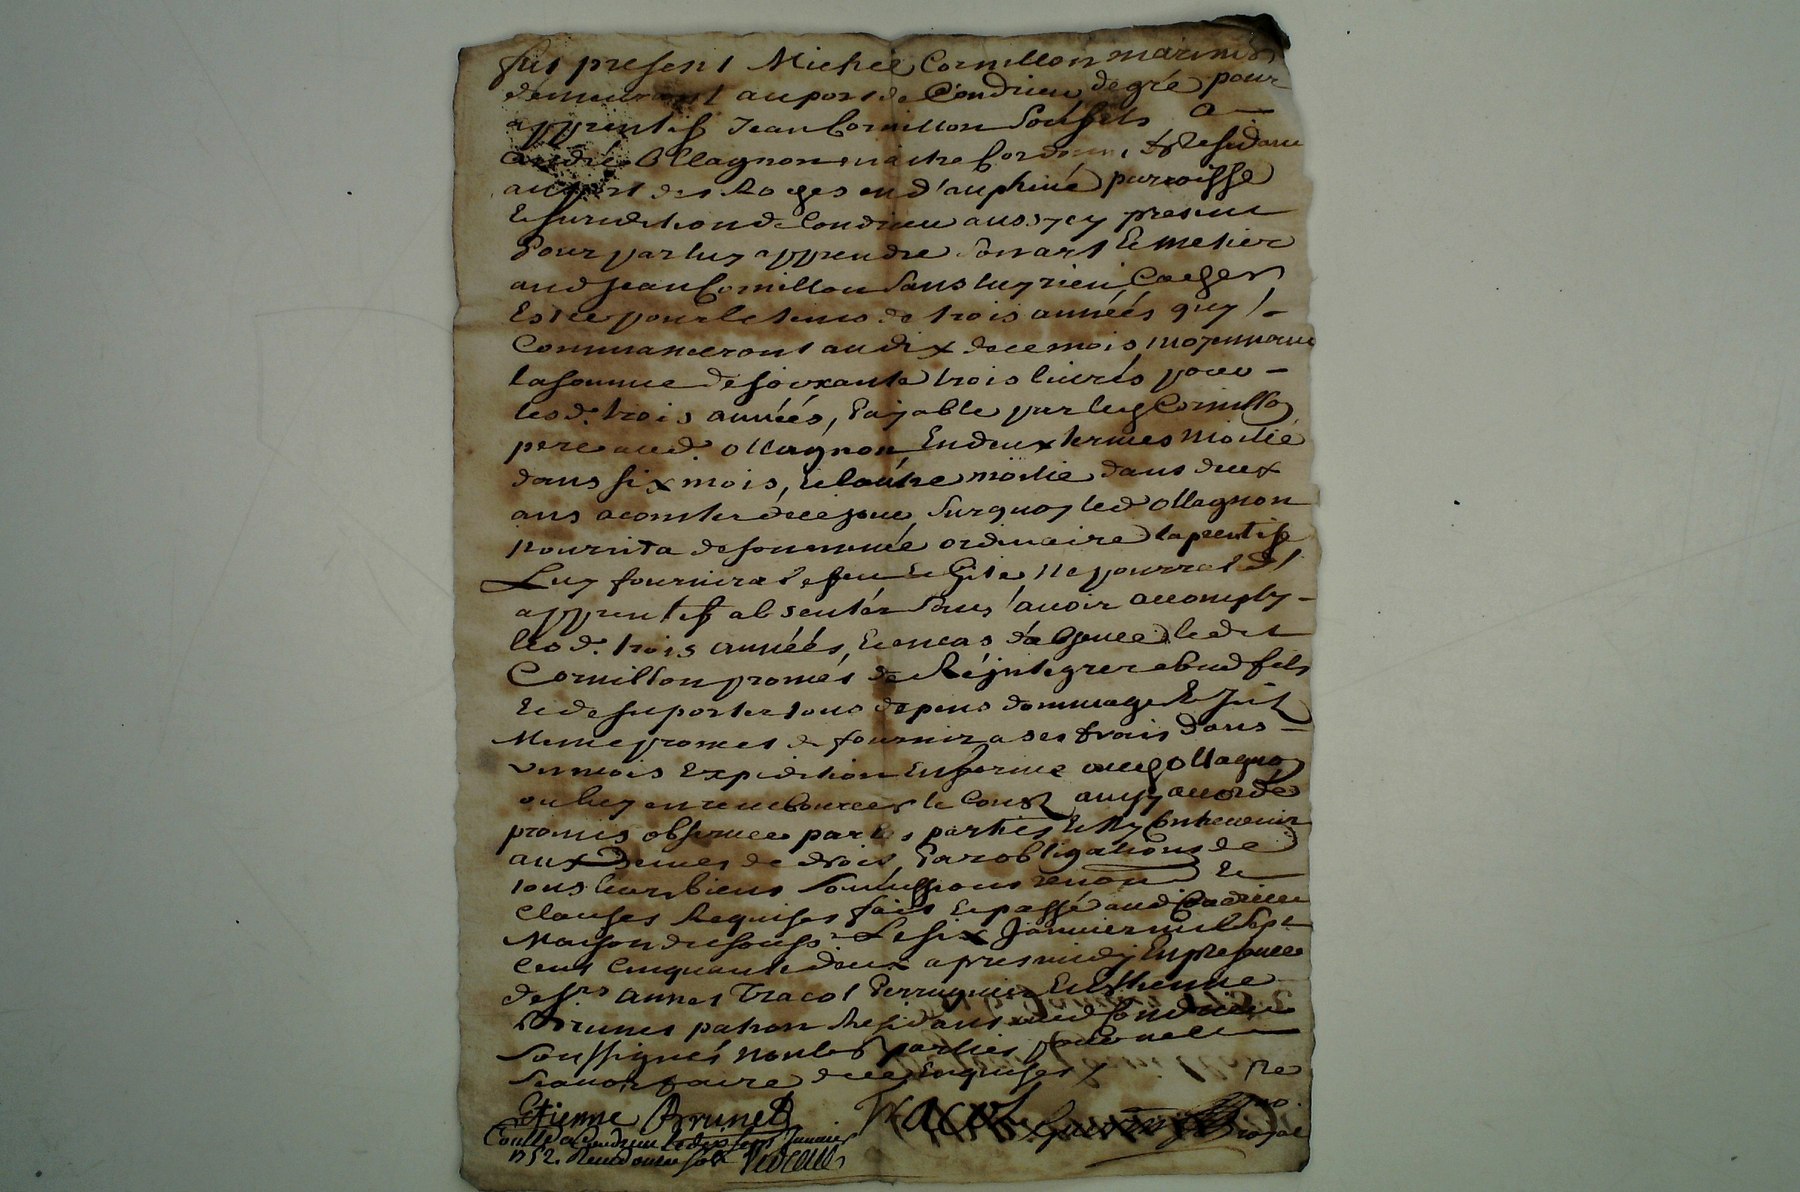 fut present Michel Cornillon marinier
demeurant au port de Condrieu de gré pour
apprentif Jean Cornillon son fils a
André Ollagnon maitre Cordonnier Residant
au port des Roches en d'auphiné parroisse
& juridiction de Condrieu aussy cy present
pour par luy apprendre son art & metier
aud Jean Cornillon sans luy rien Cacher
Est ce pour le tems de trois années quy
Commanceront au dix de ce mois moyennant
la somme de soixante trois livres pour
les d. trois années, payable par led Cornillon
pere aud ollagnon En deux termes moitié
dans six mois, & lautre moitie dans deux
ans a conter de ce jour, surquoy led ollagnon
nourrira de ordinaire lapprentif
Luy fournira le feu & gite, Ne pourra led
apprentif absenter sans avoir accomply
les d. trois années, & en cas d'absence ledit
Cornillon promes de Réjntegrer sond fils
& de suporter tous depens dommages &
Meme promes de fournir a ses frais dans
un mois Expedition En forme aud ollagnon
ou luy en rembourcer le Coust ainsy accordé
promis observer par les parties & Ny Contrevenir
aux peines de droit, par obligations de
tous leurs biens soumissions renon &
Clauses Requises fait & passé aud Condrieu
Maison du sousse Le six Janvier mil sept
Cens Cinquante deux apres midy En presence
de srs annet Tracol perruquier & Estienne
Brunet patron Residans aud Condrieu
soussignés non les parties pour ne
scavoir faire de ce Enquises
Etienne Brunet Tracol no.re royal
Conllé a Condrieu le dix sept Janvier
1752. Receu